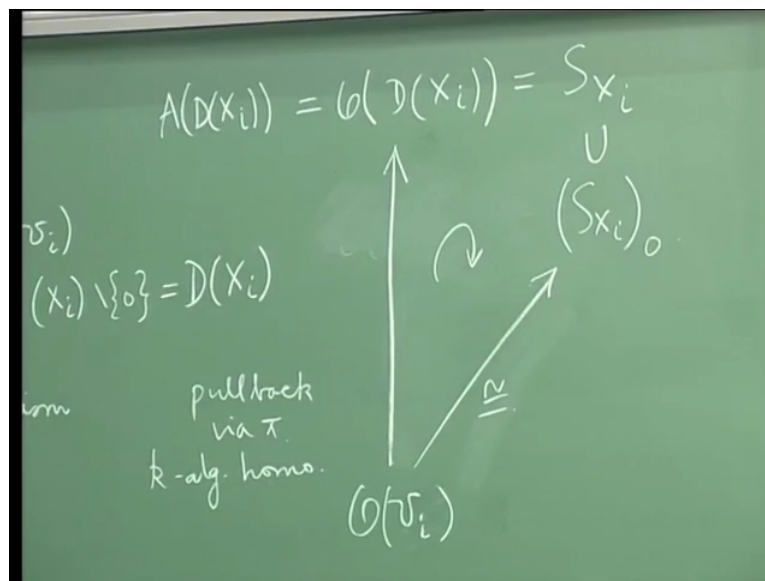 A(D(Xᵢ)) = O(D(Xᵢ)) = S_{Xᵢ}
∪
(S_{Xᵢ})₀
vᵢ)
(Xᵢ)\{0} = D(Xᵢ)
≅
pullback
via π.
k-alg. homo.
O(vᵢ)